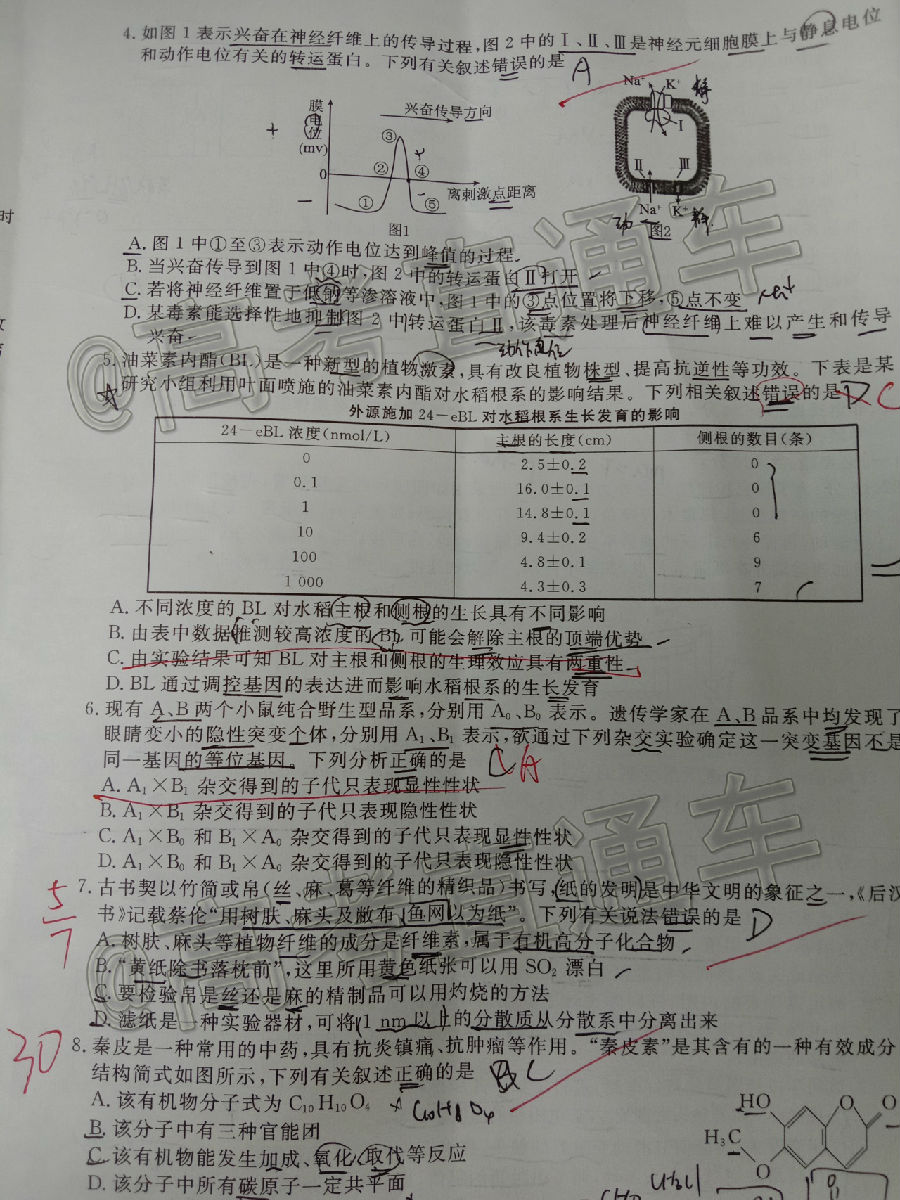 4. 如图 1 表示兴奋在神经纤维上的传导过程,图 2 中的Ⅰ、Ⅱ、Ⅲ是神经元细胞膜上与静息电位
和动作电位有关的转运蛋白。下列有关叙述错误的是 A
膜电位(mv)
兴奋传导方向
0
① ② ③ ④ ⑤
离刺激点距离
图1
Na⁺ K⁺ 静
Ⅰ
Ⅱ Ⅲ
动 Na⁺ K⁺ 静
图2
A. 图 1 中①至③表示动作电位达到峰值的过程
B. 当兴奋传导到图 1 中④时,图 2 中的转运蛋白Ⅱ打开
C. 若将神经纤维置于低钠等渗溶液中,图 1 中的③点位置将下移,⑤点不变
D. 某毒素能选择性地抑制图 2 中转运蛋白Ⅱ,该毒素处理后神经纤维上难以产生和传导
兴奋
动作电位
5. 油菜素内酯(BL)是一种新型的植物激素,具有改良植物株型、提高抗逆性等功效。下表是某
研究小组利用叶面喷施的油菜素内酯对水稻根系的影响结果。下列相关叙述错误的是 D C
外源施加 24-eBL 对水稻根系生长发育的影响
24-eBL 浓度(nmol/L) 主根的长度(cm) 侧根的数目(条)
0 2.5±0.2 0
0.1 16.0±0.1 0
1 14.8±0.1 0
10 9.4±0.2 6
100 4.8±0.1 9
1 000 4.3±0.3 7
A. 不同浓度的 BL 对水稻主根和侧根的生长具有不同影响
B. 由表中数据推测较高浓度的 BL 可能会解除主根的顶端优势
C. 由实验结果可知 BL 对主根和侧根的生理效应具有两重性
D. BL 通过调控基因的表达进而影响水稻根系的生长发育
6. 现有 A、B 两个小鼠纯合野生型品系,分别用 A₀、B₀ 表示。遗传学家在 A、B 品系中均发现了
眼睛变小的隐性突变个体,分别用 A₁、B₁ 表示,欲通过下列杂交实验确定这一突变基因不是
同一基因的等位基因。下列分析正确的是 C A
A. A₁×B₁ 杂交得到的子代只表现显性性状
B. A₁×B₁ 杂交得到的子代只表现隐性性状
C. A₁×B₀ 和 B₁×A₀ 杂交得到的子代只表现显性性状
D. A₁×B₀ 和 B₁×A₀ 杂交得到的子代只表现隐性性状
5/7
7. 古书契以竹简或帛(丝、麻、葛等纤维的精织品)书写,纸的发明是中华文明的象征之一,《后汉
书》记载蔡伦“用树肤、麻头及敝布、鱼网以为纸”。下列有关说法错误的是 D
A. 树肤、麻头等植物纤维的成分是纤维素,属于有机高分子化合物
B. “黄纸除书落枕前”,这里所用黄色纸张可以用 SO₂ 漂白
C. 要检验帛是丝还是麻的精制品可以用灼烧的方法
D. 滤纸是一种实验器材,可将 1 nm 以上的分散质从分散系中分离出来
30
8. 秦皮是一种常用的中药,具有抗炎镇痛、抗肿瘤等作用。“秦皮素”是其含有的一种有效成分
结构简式如图所示,下列有关叙述正确的是 C
A. 该有机物分子式为 C₁₀H₁₀O₄ C₁₀H₈O₄
B. 该分子中有三种官能团
C. 该有机物能发生加成、氧化、取代等反应
D. 该分子中所有碳原子一定共平面
HO O O
H₃C O
@高考直通车
@高考直通车
时